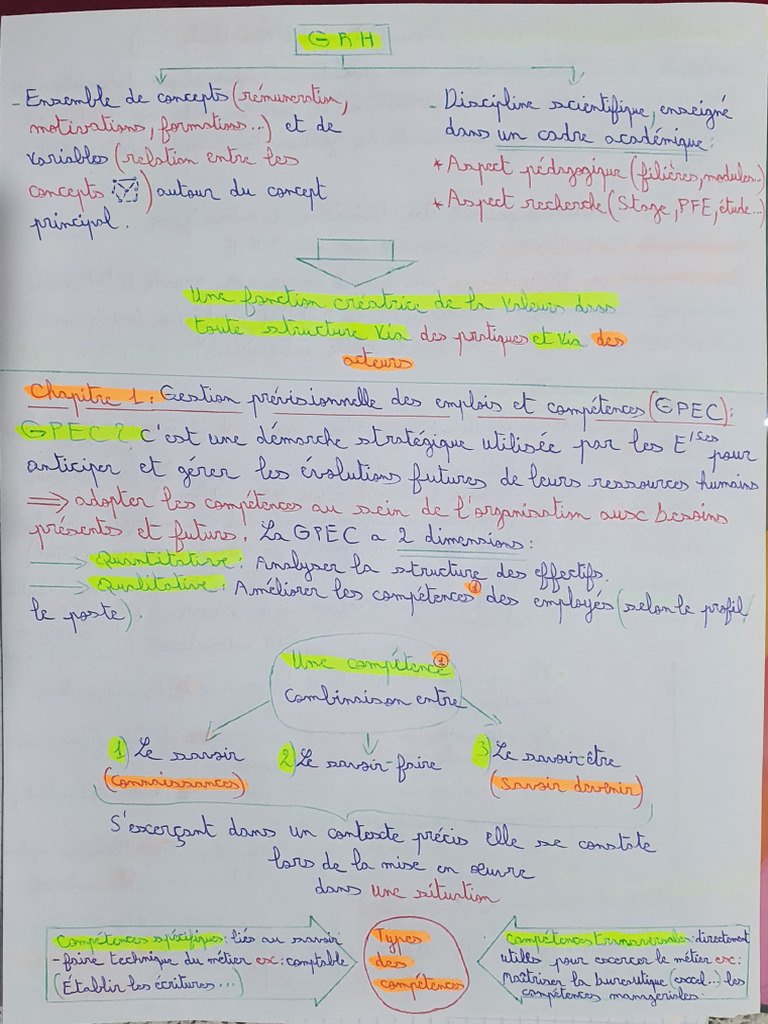 GRH
- Ensemble de concepts (rémunération,
motivations, formations...) et de
variables (relation entre les
concepts) autour du concept
principal.
- Discipline scientifique, enseigné
dans un cadre académique:
* Aspect pédagogique (filières, modules...)
* Aspect recherche (Stage, PFE, étude...)
Une fonction créatrice de la valeurs dans
toute structure via des pratiques et via des
acteurs
Chapitre 1: Gestion prévisionnelle des emplois et compétences (GPEC):
GPEC? C'est une démarche stratégique utilisée par les E/ses pour
anticiper et gérer les évolutions futures de leurs ressources humains
⇒ adopter les compétences au sein de l'organisation aux besoins
présents et futurs. La GPEC a 2 dimensions:
→ Quantitative: Analyser la structure des effectifs.
→ Qualitative: Améliorer les compétences ① des employés (selon le profil/
le poste).
Une compétence ①
combinaison entre
1) Le savoir
(connaissances)
2) Le savoir-faire
3) Le savoir-être
(Savoir devenir)
S'exerçant dans un contexte précis elle se constate
lors de la mise en œuvre
dans une situation
Compétences spécifiques: liés au savoir
-faire technique du métier ex: comptable
(Établir les écritures...)
Types
des
compétences
Compétences transversales: directement
utiles pour exercer le métier ex:
maîtriser la bureutique (excel...) les
compétences managériales.